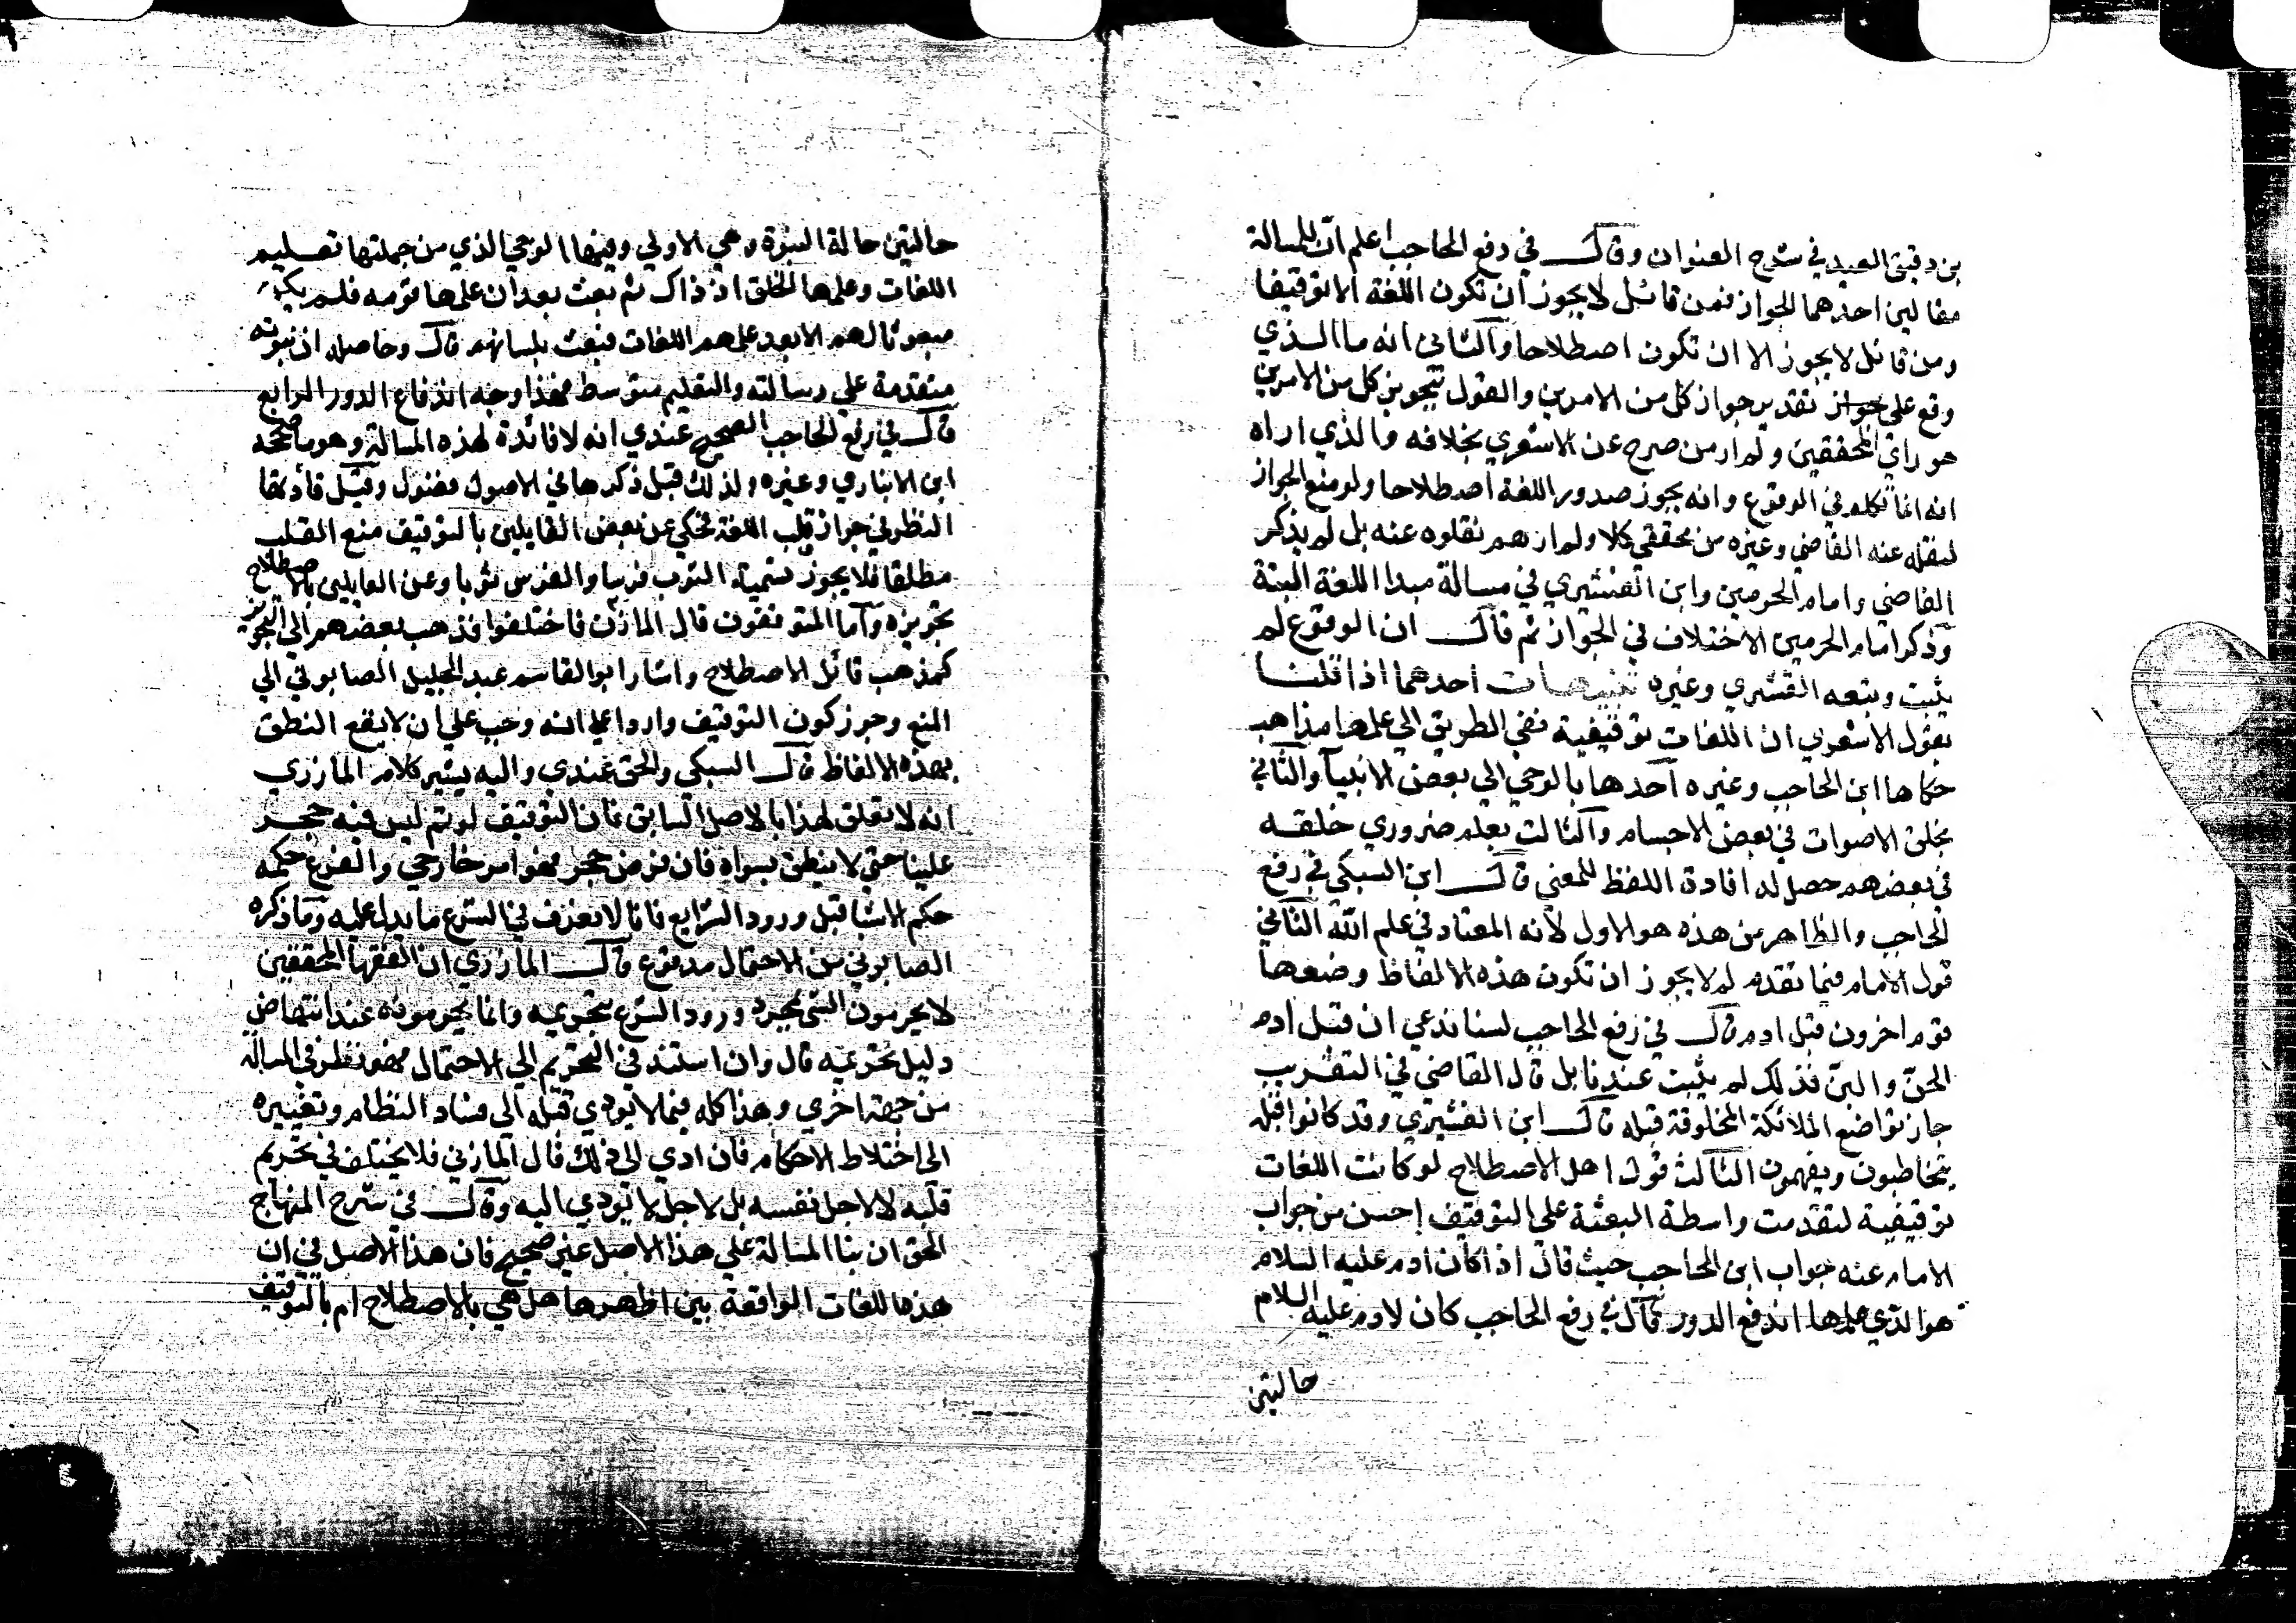 بن دقيق العيد في شرح العنوان وقال في رفع الحاجب اعلم ان للمسالة
مقالين احدهما الجواز فمن قائل لا يجوز ان تكون اللغة الا توقيفا
ومن قائل لا يجوز الا ان تكون اصطلاحا والثاني انه ما الذي
وقع على جواز تقدير جواز كل من الامرين والقول بتجويز كل من الامرين
هو راي المحققين ولم ار من صرح عن الاشعري بخلافه والذي اراه
انه انما تكلم في الوقوع وانه يجوز صدور اللغة اصطلاحا ولو منع الجواز
لنقله عنه القاضي وغيره من محققي كلامه ولم ارهم نقلوه عنه بل لم يذكر
القاضي وامام الحرمين وابن القشيري في مسالة مبدا اللغة البتة
وذكر امام الحرمين الاختلاف في الجواز ثم قال ان الوقوع لم
يثبت وتبعه القشيري وغيره تنبيهات احدهما اذا قلنا
بقول الاشعري ان اللغات توقيفية ففي الطريق الي علمها مذاهب
حكاها ابن الحاجب وغيره احدها بالوحي الي بعض الانبيا والثاني
بخلق الاصوات في بعض الاجسام والثالث بعلم ضروري خلقه
في بعضهم حصل له افادة اللفظ للمعني قال ابن السبكي في رفع
الحاجب والظاهر من هذه هو الاول لانه المعتاد في علم الله الثاني
قول الامام فيما تقدم لم لا يجوز ان تكون هذه الالفاظ وضعها
قوم اخرون قبل ادم قال في رفع الحاجب لسنا ندعي ان قبل ادم
الجن والبن فذلك لم يثبت عندنا بل قال القاضي في التقريب
جاز تواضع الملائكة المخلوقة قبله قال ابن القشيري وقد كانوا قبله
يتخاطبون ويفهمون الثالث قول اهل الاصطلاح لو كانت اللغات
توقيفية لتقدمت واسطة البعثة على التوقيف احسن من جواب
الامام عنه جواب ابن الحاجب حيث قال اذا كان ادم عليه السلام
هو الذي علمها اندفع الدور قال في رفع الحاجب كان لادم عليه السلام
حالتين
حالتين حالة النبوة وهي الاولي وفيها الوحي الذي من جملتها تعليم
اللغات وعلمها الخلق اذ ذاك ثم بعث بعد ان علمها قومه فلم يكن
مبعوثا لهم الا بعد علمهم اللغات فبعث بلسانهم قال وحاصله ان نبوته
متقدمة علي رسالته والتعليم متوسط فهذا وجه اندفاع الدور الرابع
قال في رفع الحاجب الصحيح عندي انه لا فائدة لهذه المسالة وهو ما صححه
ابن الانباري وغيره ولذلك قيل ذكرها في الاصول فضول وقيل فائدتها
النظر في جواز قلب اللغة فحكي عن بعض القايلين بالتوقيف منع القلب
مطلقا فلا يجوز تسمية الثوب فرسا والفرس ثوبا وعن القايلين بالاصطلاح
تجويزه واما المتوقفون قال المازني فاختلفوا فذهب بعضهم الي التجويز
كمذهب قائل الاصطلاح واشار ابو القاسم عبد الجليل الصابوني الي
المنع وجوز كون التوقيف واردا علي انه وجب علي ان لا يقع النطق
بهذه الالفاظ قال السبكي والحق عندي واليه يشير كلام المازري
انه لا تعلق لهذا بالاصل السابق فان التوقيف لو تم ليس فيه حجر
علينا حتي لا ينطق بسواه فان فرض حجر فهو امر خارجي والفرع حكمه
حكم الاشيا قبل ورود الشرايع فانا لا نعرف في الشرع ما يدل عليه وما ذكره
الصابوني من الاحتمال مدفوع قال المازري ان الفقها المحققين
لا يحرمون الشي بمجرد ورود الشرع بتحريمه وانما يحرمونه عند انتهاض
دليل تحريمه قال وان استند في التحريم الي الاحتمال فهو نظر في المسالة
من جهة اخري وهذا كله فيما لا يودي قلبه الى فساد النظام وتغييره
الى اختلاط الاحكام فان ادي الي ذلك قال المازني فلا يختلف في تحريم
قلبه لا لاجل نفسه بل لاجل ما يودي اليه وقال في شرح المنهاج
الحق ان بنا المسالة علي هذا الاصل غير صحيح فان هذا الاصل في ان
هذه اللغات الواقعة بين اظهرها هل هي بالاصطلاح ام بالتوقيف